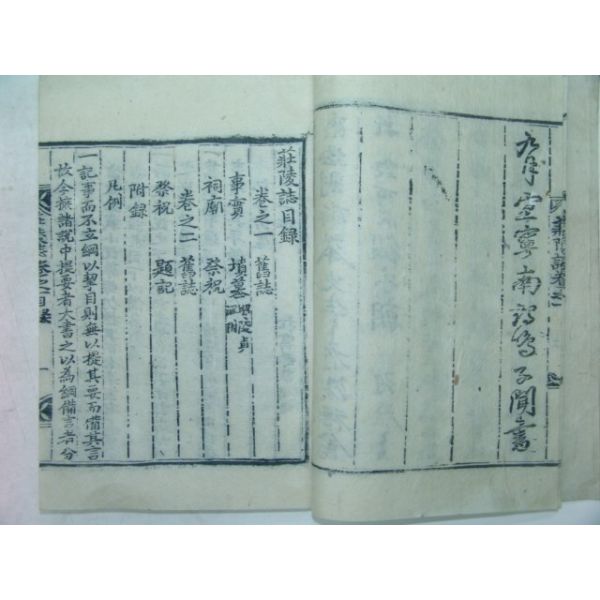 九月 宜寧南鶴鳴子聞書
莊陵誌目錄
卷之一 舊誌
事實 墳墓
祠廟 祭祝
卷之二 舊誌
祭祝 題記
附錄
凡例
一記事而不立綱以挈目則無以提其要而備其言
故今摭諸說中提要者大書之以為綱備言者分